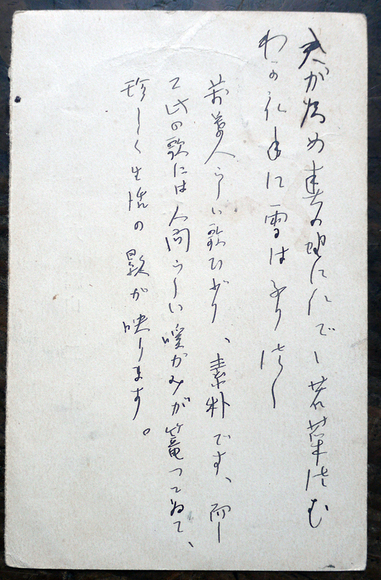 が為め春の野にいでゝ若菜つむ
わか衣手に雪はふりつゝ
萬葉人らしい歌ひぶり、素朴です、而し
此の歌には人間らしい暖かみが篭つてゐて、
珍しく生活の影が映ります。